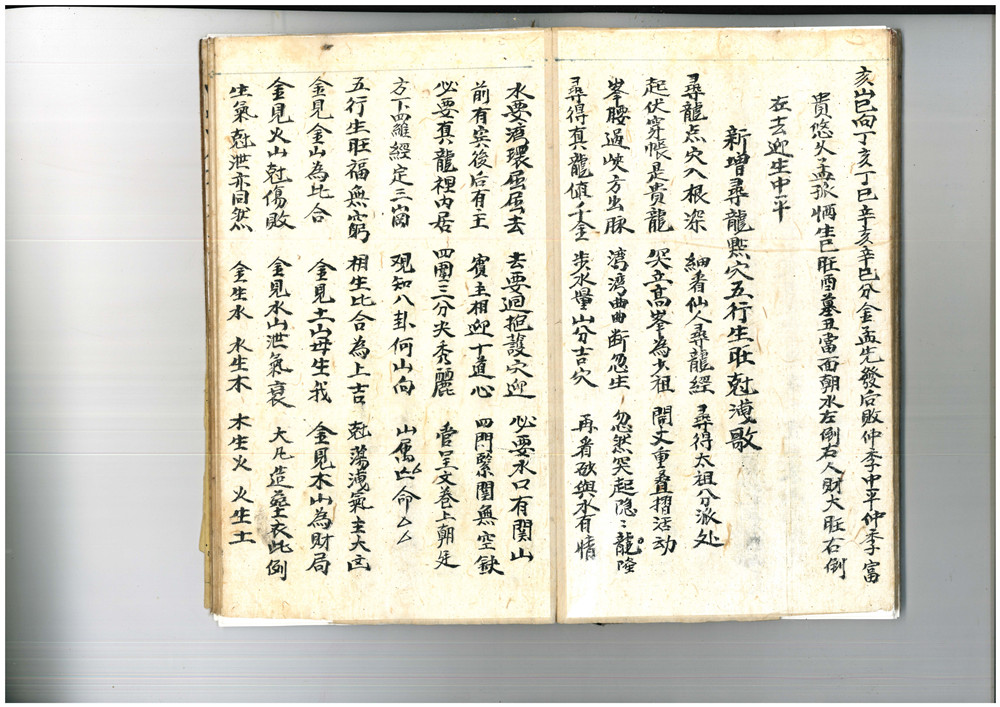 亥山巳向丁亥丁巳辛亥辛巳分金孟先發后敗仲季中平仲季富
貴悠久孟派怲生巳旺酉墓丑當面朝水左倒右人財大旺右倒
左去迎生中平
新增尋龍點穴五行生旺尅洩歌
尋龍点穴入根深 細看仙人尋龍經 尋得太祖分派处
起伏穿帳是貴龍 突立高峯為少祖 開丈重叠摺活动
峯腰過峽方出脉 湾湾曲曲断忽生 忽然突起隐〻龍隆
尋得真龍值千金 步水量山分吉穴 再看砂與水有情
水要湾環屈屈去 去要迴抱護穴迎 必要水口有関山
前有宾後后有主 賓主相迎十道心 四門緊閉無空缺
必要真龍裡内居 四圍三分尖秀麗 管呈文卷上朝廷
方下羅經定三岗 观知八卦何山向 山属亡命厶厶
五行生旺福無窮 相生比合為上吉 尅蕩洩氣主大凶
金見金山為比合 金見土山母生我 金見木山為財局
金見火山尅傷敗 金見水山泄氣衰 大凡造塟衣此例
生氣尅泄亦同然 金生水 水生木 木生火 火生土